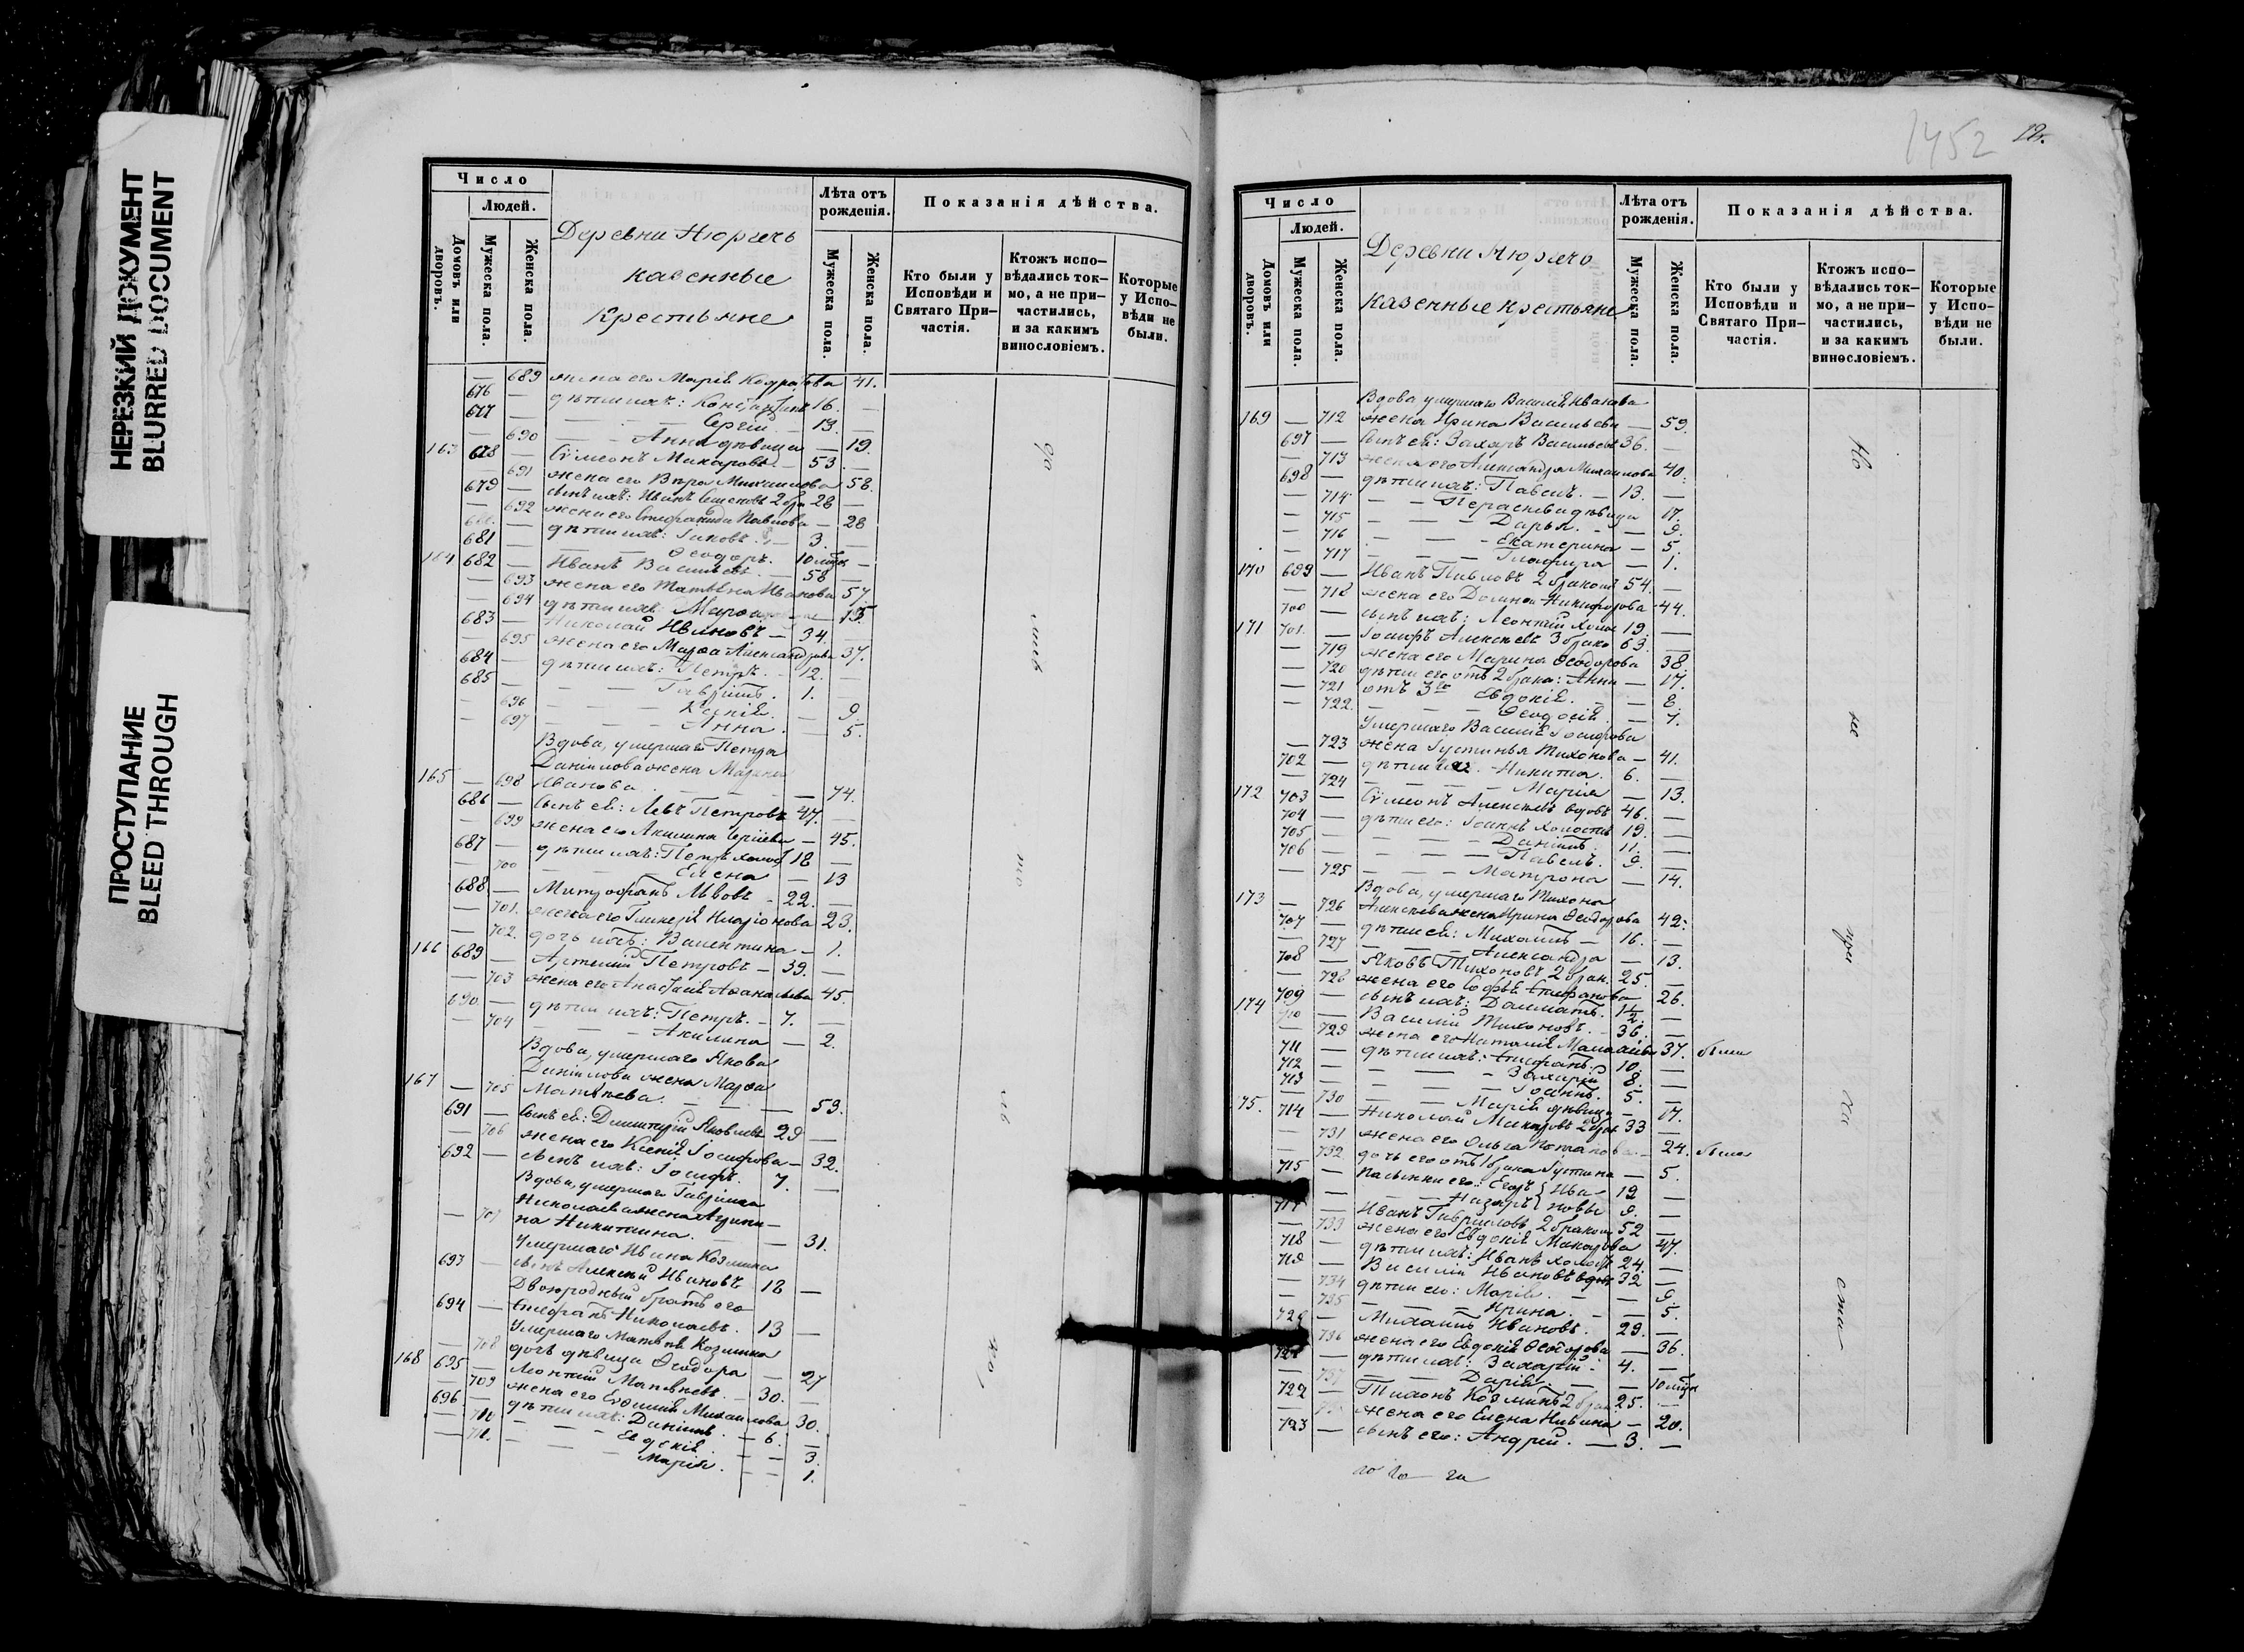 НЕРЕЗКИЙ ДОКУМЕНТ
BLURRED DOCUMENT
ПРОСТУПАНИЕ
BLEED THROUGH
Число
Людей.
Домовъ или дворовъ.
Мужеска пола.
Женска пола.
казенные
Крестьяне
Лѣта отъ рожденія.
Мужеска пола.
Женска пола.
Показанія дѣйства.
Кто были у Исповѣди и Святаго При-частія.
Ктожъ испо-вѣдались ток-мо, а не при-частились, и за какимъ винословіемъ.
Которые у Испо-вѣди не были.
689 жена его Марія 41.
676 — дѣти ихъ: 16. —
677 — Сергій 13. —
— 690 Анна дѣвица — 19.
163 678 — Сѷмеонъ Макаровъ 53. —
— 691 жена его Михаилова 58.
679 — сынъ ихъ: Иванъ 28 —
— 692 жена его Стефанида Павлова — 28
— дѣти ихъ: Іаковъ 3. —
681 — Ѳеодоръ. —
164 682 — Иванъ Васильевъ 58 —
— 693 жена его Иванова 57.
— 694 дѣти ихъ: 15.
683 — Николай Ивановъ — 34. —
— 695 жена его Марѳа Александрова 37.
684 — дѣти ихъ: Петръ. 12. —
685 — Гавріилъ. 1. —
— 696 Ксенія. — 9.
— 697 Анна. — 5.
Вдова, умершаго Петра
Даніилова жена
165 — 698 Иванова — 74.
686 — сынъ ея: Левъ Петровъ 47. —
— 699 жена его Акилина — 45.
687 — дѣти ихъ: Петръ 18 —
— 700 Елена — 13
688 — Митрофанъ Львовъ 22. —
— 701. жена его Гликерія Иларіонова 23.
— 702. дочь ихъ: Валентина — 1.
166 689 — Артемій Петровъ — 39. —
— 703 жена его Анастасія 45.
690 — дѣти ихъ: Петръ. — 7. —
— 704 Акилина — 2.
Вдова, умершаго Якова
Даніилова жена Марѳа
167 — 705 Матвѣева. — 59.
691 — сынъ ея: Димитрій Яковлевъ 29 —
— 706 жена его Ксенія Іосифова — 32.
692 — сынъ ихъ: Іосифъ. 7. —
Вдова, умершаго Гавріила
Николаева жена
— 707 на Никитина. — 31.
Умершаго Ивана Козмина
693 — сынъ Алексій Ивановъ 18 —
Двоюродный братъ его
694 — Стефанъ Николаевъ. 13 —
Умершаго Матвѣя Козмина
— 708 дочь дѣвица Ѳеодора — 27
168 695 — Леонтій Матвѣевъ. 30. —
— 709 жена его Евѳимія Михаилова 30.
696 — дѣти ихъ: Даніилъ. — 6. —
— 710 Евдокія. — 3.
— 711. Марія. — 1.
1452
Число
Людей.
Домовъ или дворовъ.
Мужеска пола.
Женска пола.
казенные крестьяне
Лѣта отъ рожденія.
Мужеска пола.
Женска пола.
Показанія дѣйства.
Кто были у Исповѣди и Святаго При-частія.
Ктожъ испо-вѣдались ток-мо, а не при-частились, и за какимъ винословіемъ.
Которые у Испо-вѣди не были.
Вдова умершаго Василія Иванова
169 — 712 жена Ирина Васильева — 59.
697 — сынъ ея: Захаръ Васильевъ 36. —
— 713 жена его Александра Михаилова 40.
698 — дѣти ихъ: Павелъ. — 13. —
— 714 Перасквева дѣвица 17.
— 715 Дарья. — 9.
— 716 Екатерина — 5.
— 717 Глафира — 1.
170 699 — Иванъ Павловъ 2 бракомъ 54. —
— 718 жена его Домна Никифорова 44.
700 — сынъ ихъ: Леонтій 19. —
171 701. — Іосифъ Алексѣевъ 3 брако 63. —
— 719 жена его Марина Ѳеодорова 38.
— 720 дѣти его отъ 2 брака: Анна — 17.
— 721 отъ 3го Евдокія. — 8.
— 722. Ѳеодосія. — 7.
Умершаго Василія Іосифова
— 723 жена Іустинья Тихонова — 41.
702 — дѣти ихъ. Никита. 6. —
— 724 Марія — 13.
172 703 — Сѷмеонъ Алексѣевъ вдовъ 46. —
704 — дѣти его: Іоаннъ холостъ 19. —
705 — Даніилъ. 11. —
706 — Павелъ. 9. —
— 725 Матрона — 14.
Вдова, умершаго Тихона
173 — 726 Алексѣева жена Ирина Ѳеодорова 42.
707 — дѣти ея: Михаилъ — 16. —
— 727 Александра — 13.
708 — Яковъ Тихоновъ 2 брак. 25. —
— 728 жена его Софья Стефанова 26.
709 — сынъ ихъ: Далматъ. 1/2 —
174 710 — Василій Тихоновъ. 36. —
— 729 жена его Наталія 37. были
711 — дѣти ихъ: Стефанъ. 10. —
712 — Захарій 8. —
713 — Іоаннъ. 5. —
— 730 Марія дѣвица — 17.
75. 714 — Николай Макаровъ 33 —
— 731 жена его Ольга — 24. были
— 732 дочь его отъ 1 брака Іустина — 5.
715 — пасынки его: Егоръ } Ива 19 —
— Назаръ } новы 9. —
717 — Иванъ Гавриловъ 2 бракомъ 52 —
— 733 жена его Евдокія Макарова 47.
718 — дѣти ихъ: Иванъ 24. —
719 — Василій Ивановъ вдовъ 32 —
— 734 дѣти его: Марія. — 9.
— 735 Ирина. — 5.
720 — Михаилъ Ивановъ. 29. —
— 736 жена его Евдокія Ѳедорова — 36.
721 — дѣти ихъ: Захарій. 4. —
— 737 Дарія. —
722 — Тихонъ Козминъ 2 брак. 25. —
жена его Елена — 20.
723 — сынъ его: Андрей. — 3. —